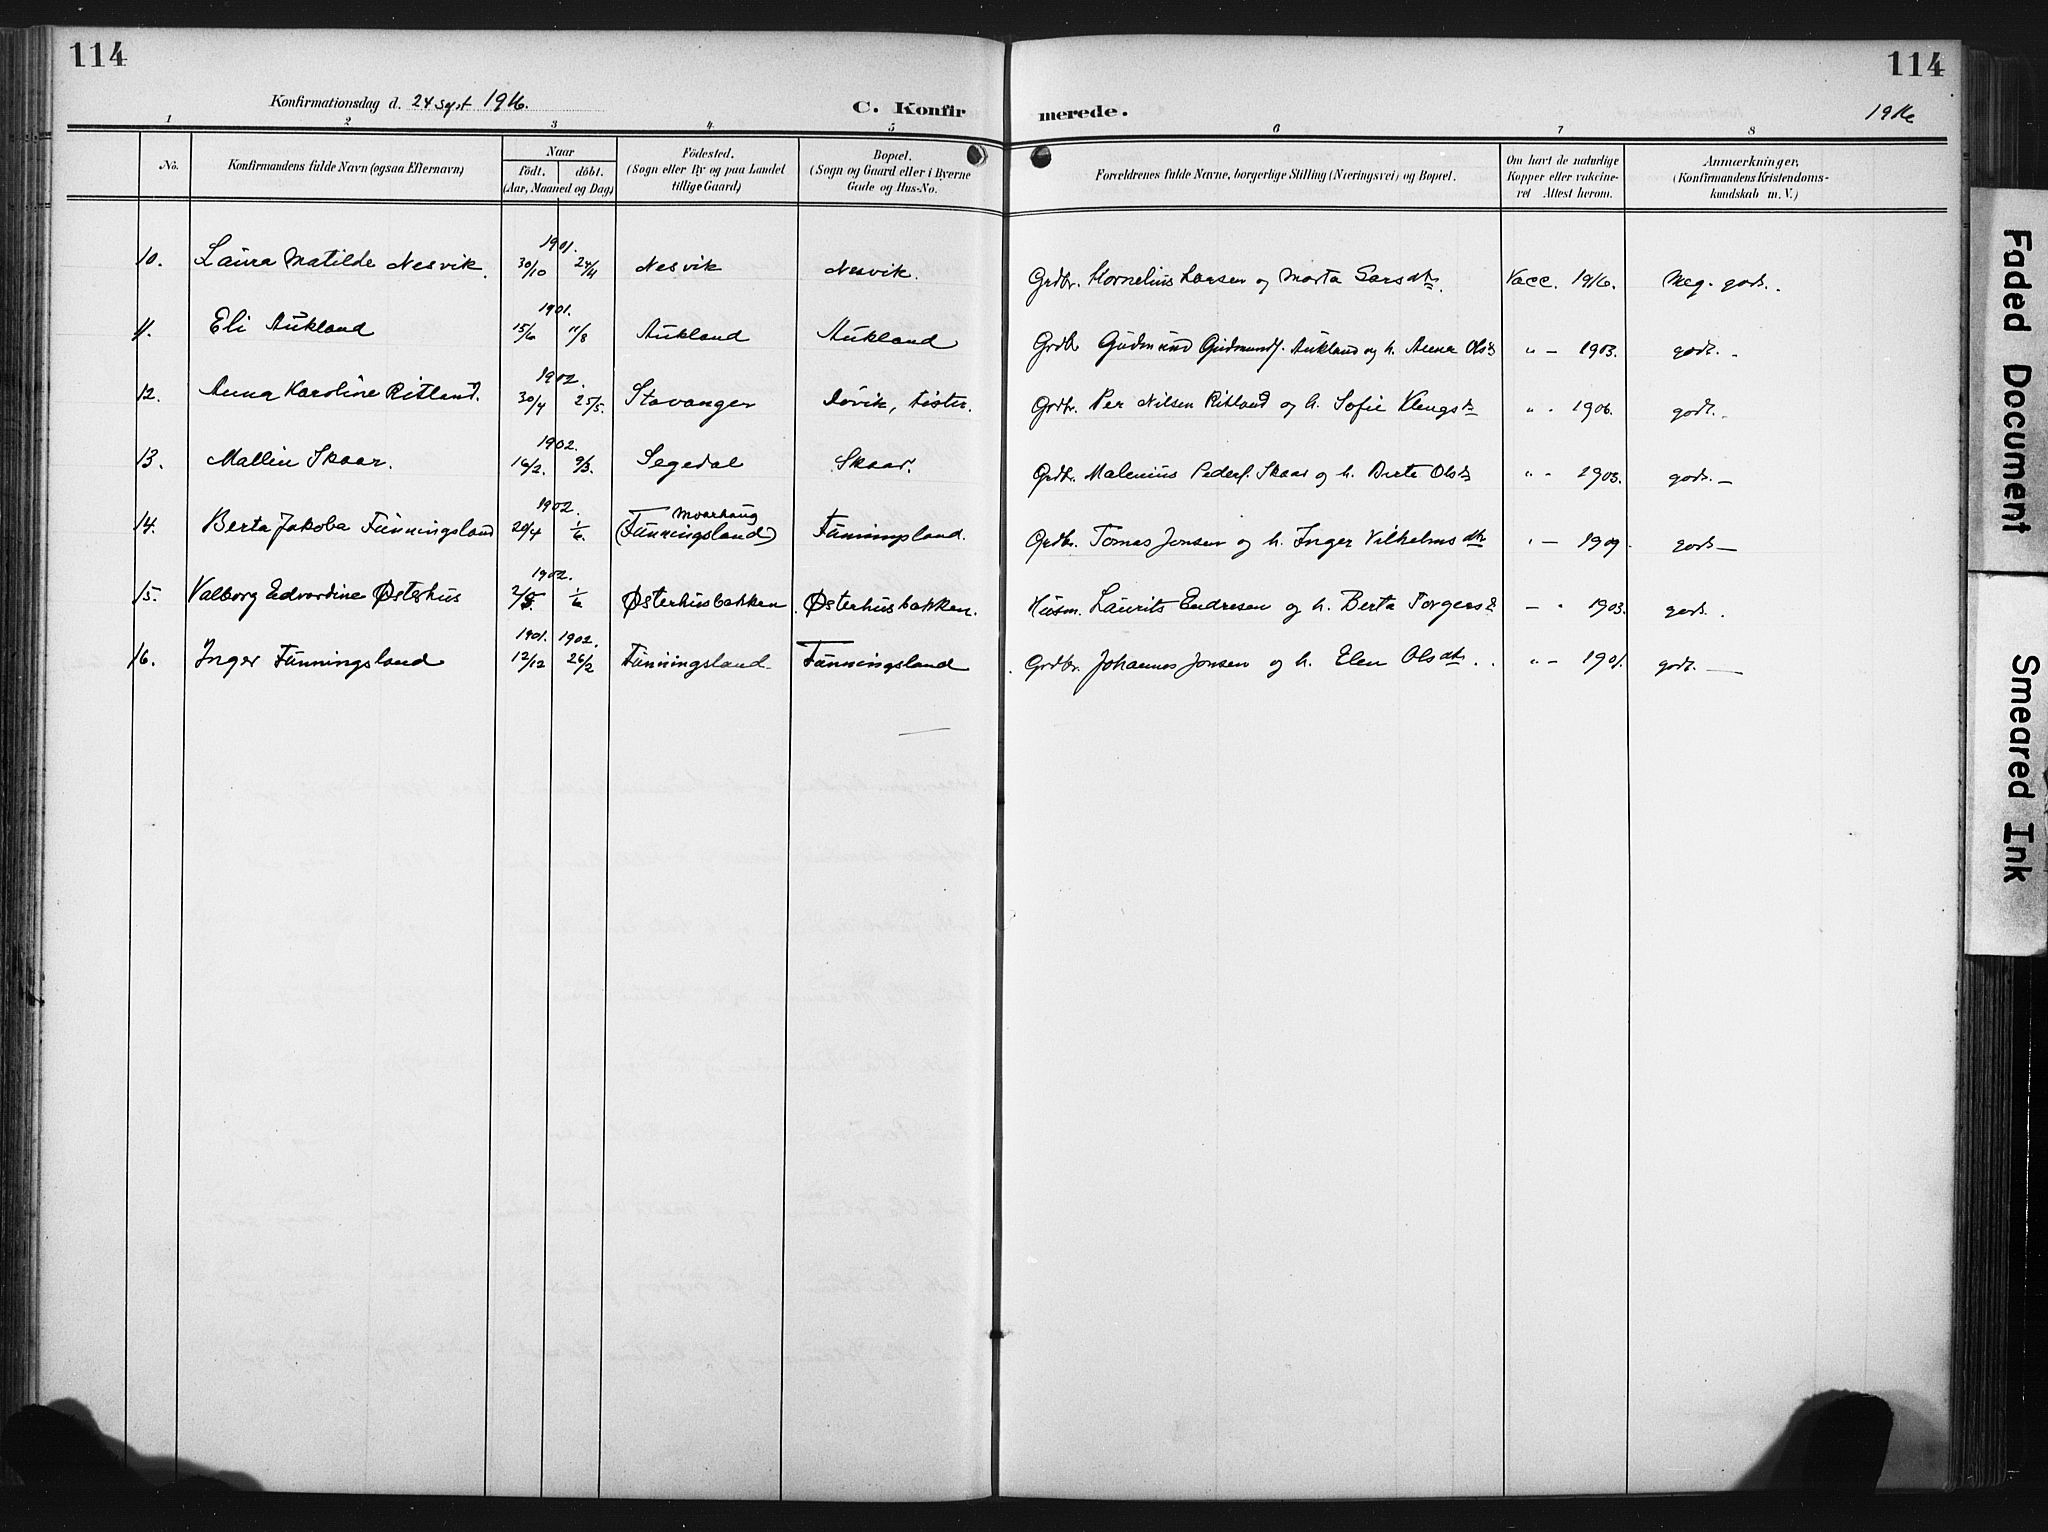 114
114
Konfirmationsdag d. 24 sept 1916.
C. Konfirmerede.
1916
1 2 3 4 5 6 7 8
No.
Konfirmandens fulde Navn (ogsaa Efternavn)
Naar
født. døbt.
(Aar, Maaned og Dag)
Födested.
(Sogn eller By og paa Landet
tillige Gaard)
Bopæl.
(Sogn og Gaard eller i Byerne
Gade og Hus-No.
Forældrenes fulde Navne, borgerlige Stilling (Næringsvei) og Bopæl.
Om havt de naturlige
Kopper eller vakcine-
ret Attest herom.
Anmærkninger,
(Konfirmandens Kristendoms-
kundskab m. V.)
1901.
10. Laura Matilde Nesvik. 30/10 24/11 Nesvik Nesvik. Grdbr. Kornelius Larsen og Marta Larsdtr. Vacc. 1916. Meg. godt.
1901.
11. Eli Aukland 15/6 11/8 Aukland Aukland Grdbr Gudmund Gudmunds. Aukland og h. Anna Olsd " - 1903. godt. -
1902.
12. Anna Karoline Ritland. 30/4 25/5. Stavanger Grdbr. Per Nilsen Ritland og h. Sofie " - 1906. godt. -
1902.
13. Mallin Skaar. 16/2. 9/3. Segedal Skaar. Grdbr. Malenius Peders. Skaar og h. Berte Olsd " - 1903. godt. -
1902.
14. Berta Jakoba Funningsland 20/4 1/6. Moarhaug (Funningsland) Funningsland. Grdbr. Tomas Jonsen og h. Inger Vilhelmsdtr " - 1909. godt -
1902.
15. Valborg Edvardine Østerhus 2/5. 1/6 Østerhusbakken. Østerhusbakken. Husm. Laurits Endresen og h. Berta Torgersd - " 1903. godt.
1901. 1902.
16. Inger Funningsland 12/12 26/2 Funningsland. Funningsland Grdbr. Johannes Jonsen og h. Elen Olsdtr. " - 1901. godt. -
Faded Document
Smeared Ink